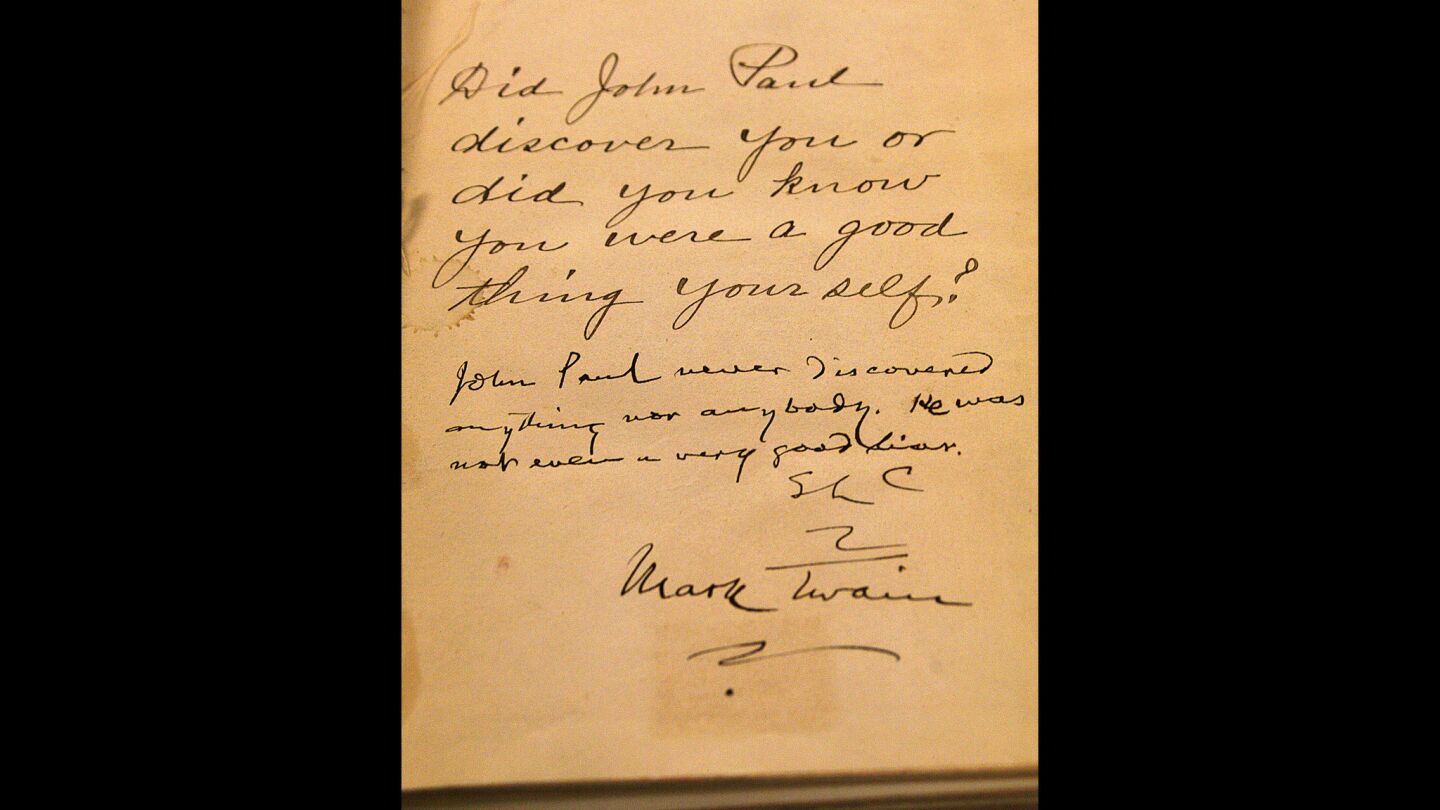 Did John Paul
discover you or
did you know
you were a good
thing yourself?
John Paul never discovered
anything nor anybody. He was
not even a very good liar.
SLC
Mark Twain